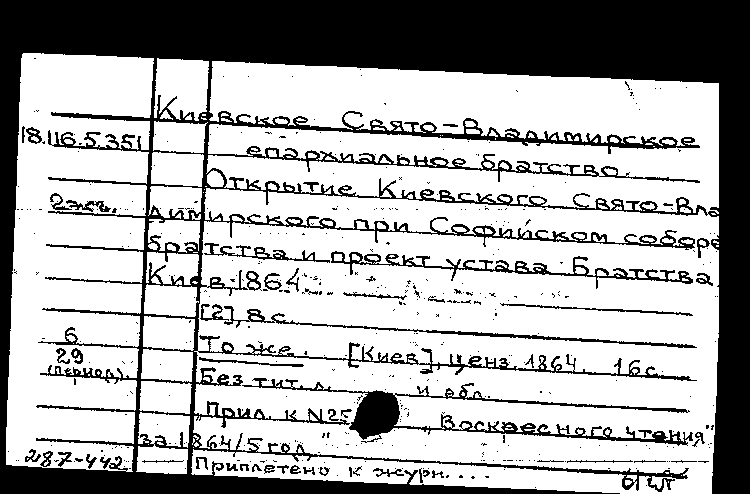 Киевское Свято-Владимирское
18.116.5.351
епархиальное братство.
Открытие Киевского Свято-Вла
2 экз.
димирского при Софийском соборе
братства и проект устава Братства.
Киев, 1864.
[2], 8 с.
6
То же. [Киев], ценз. 1864. 16 с.
29
(период).
Без тит. л. и обл.
"Прил. к N25 "Воскресного чтения"
за 1864/5 год,"
287-442
Приплетено к журн. ...